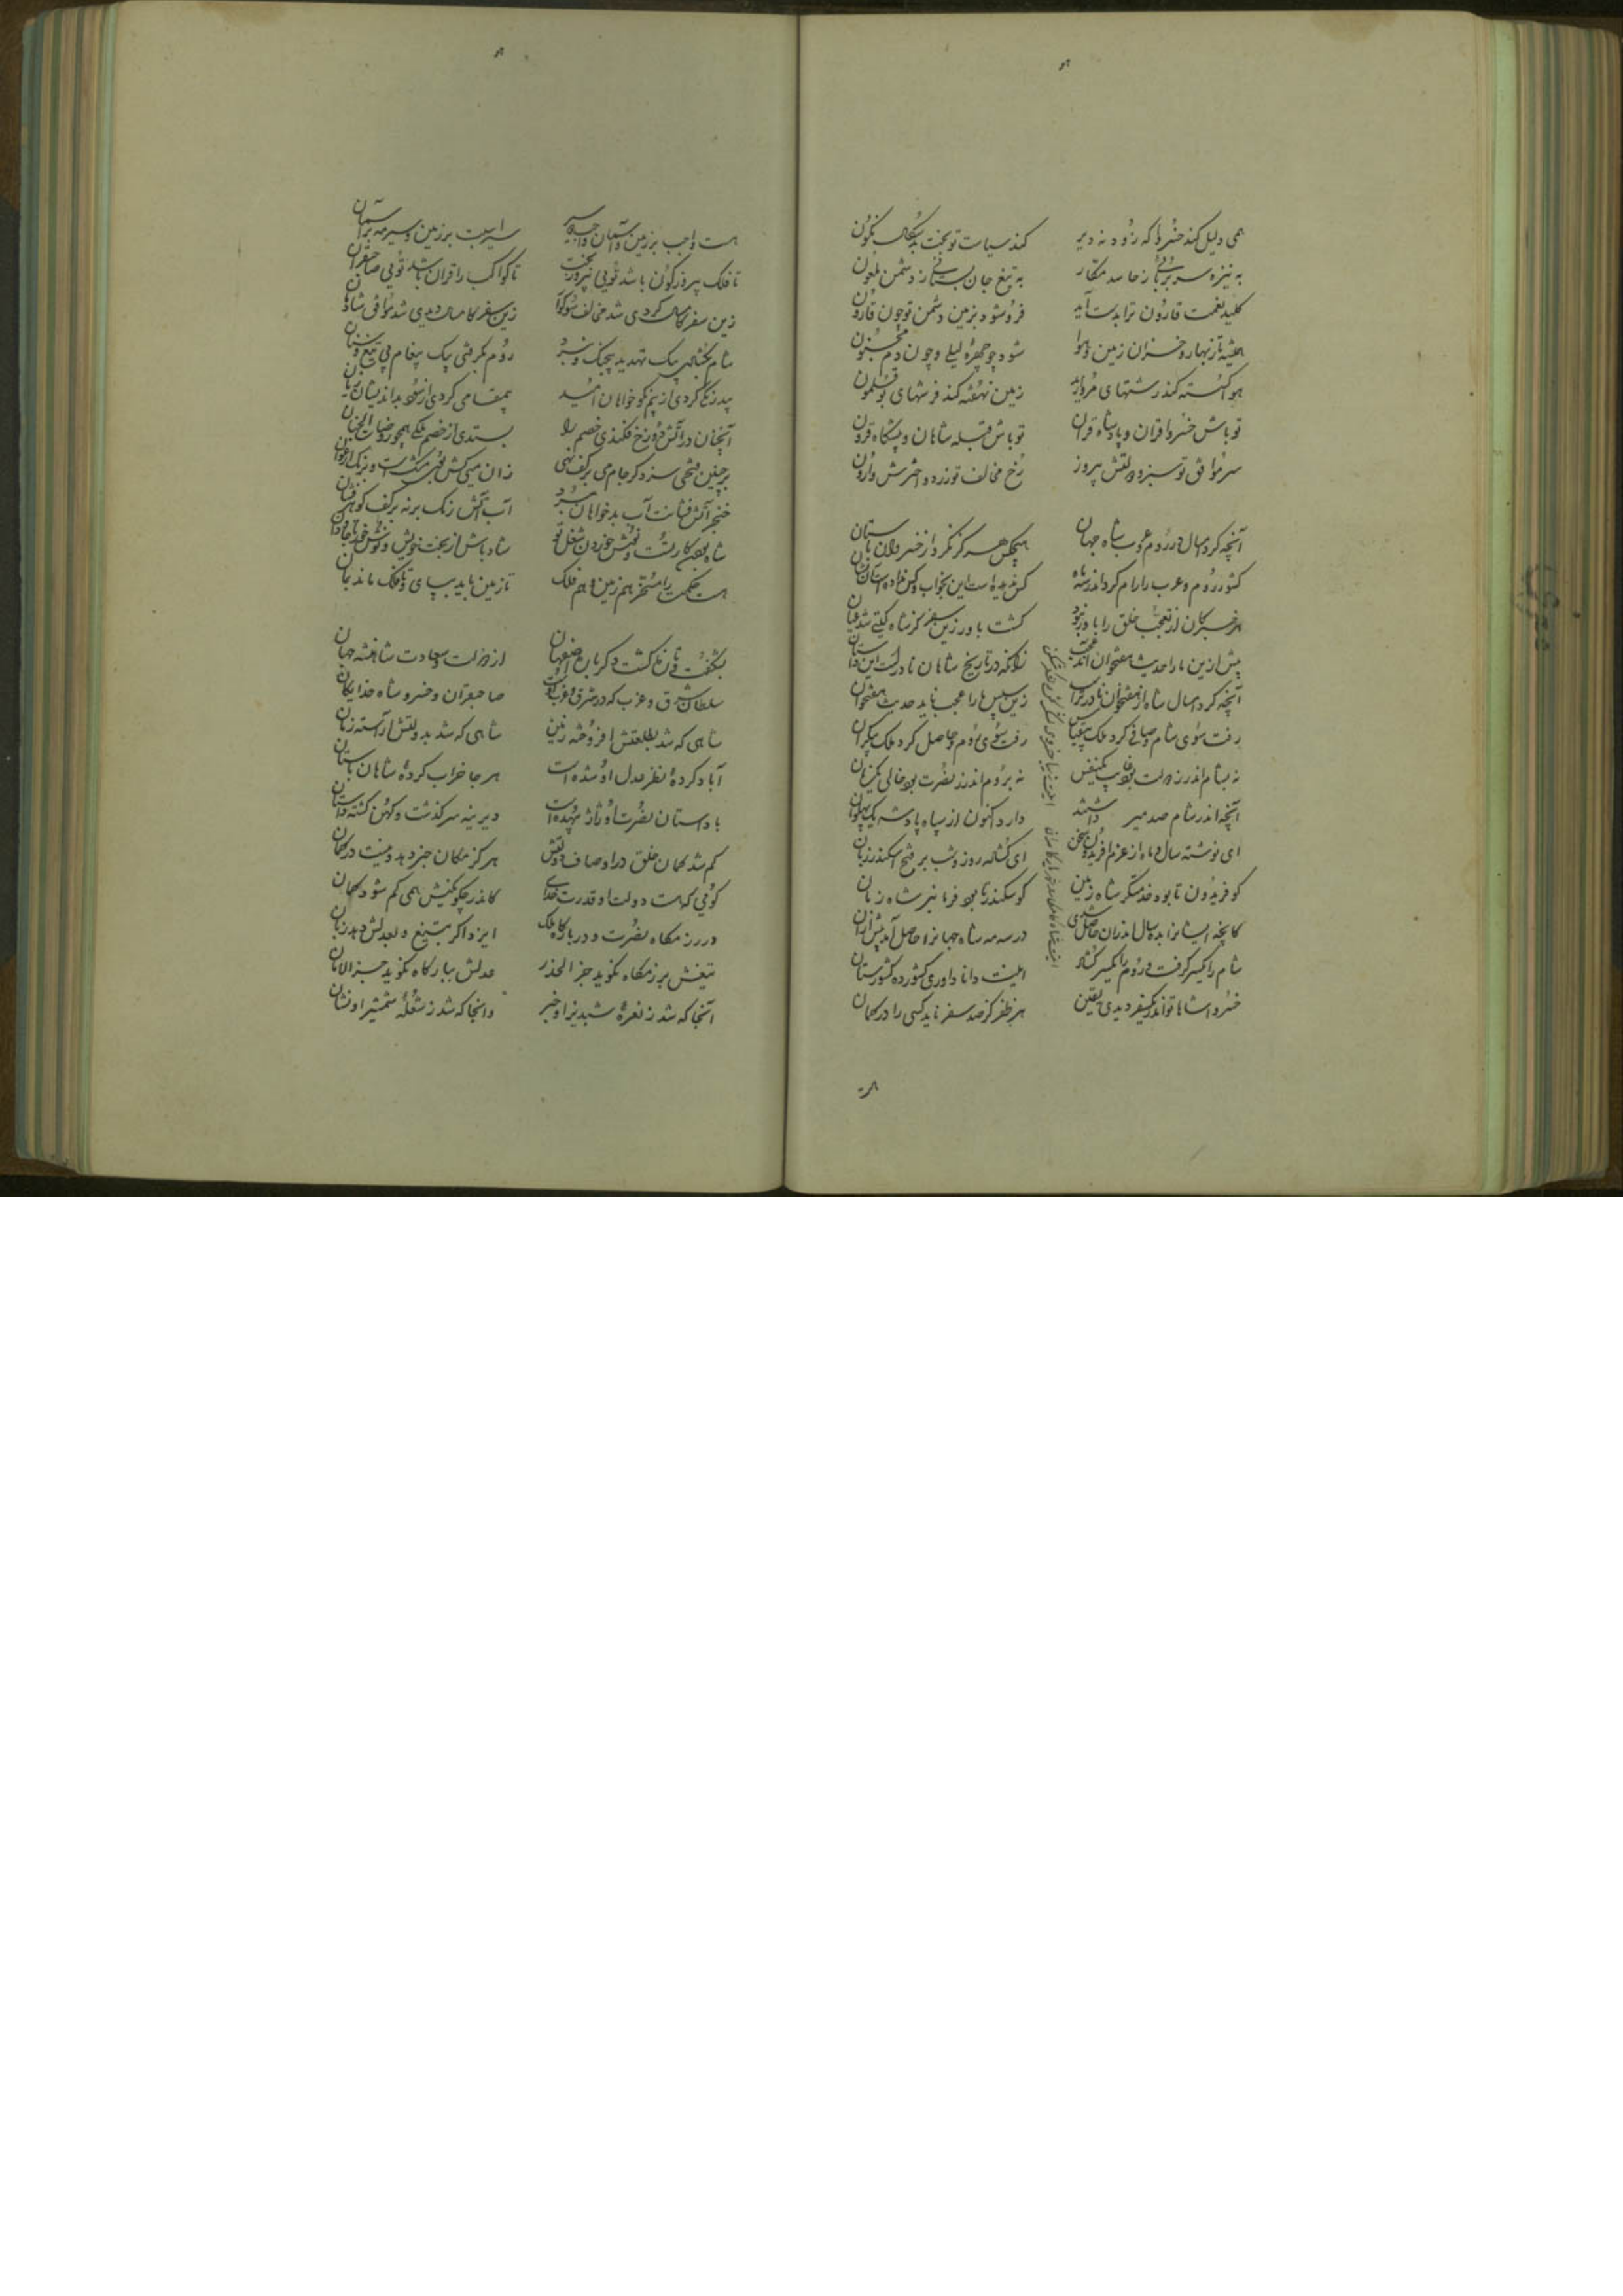 همی دلیل کند خسروا که زود نه دیر
کند سیاست تو بخت بدسگال نگون
به نیزه سر بربائی ز حاسد مکار
به تیغ جان بستانی ز دشمن ملعون
کلید نعمت قارون ترا بدست آید
فرو شود بزمین دشمن تو چون قارون
همیشه تا ز بهار و خزان زمین و هوا
شود چو چهره لیلی و چون دم مجنون
هوا گسسته کند رشتهای مروارید
زمین نهفته کند فرشهای بوقلمون
تو باش خسرو اقران و پادشاه قران
تو باش قبله شاهان و پیشگاه قرون
سر موافق تو سبز و دولتش پیروز
رخ مخالف تو زرد و اخترش وارون
آنچه کرد امسال در روم و عرب شاه جهان
هیچکس هرگز نکرد از خسروان باستان
کشور روم و عرب را رام کرد اندر سه ماه
کس ندیده است این بخواب و کس نداده است آن نشان
هر خبر کان از تعجب خلق را باور نبود
گشت باور زین سفر کز شاه گیتی شد عیان
پیش ازین ما را حدیث هفتخوان آمد عجب
زانکه در تاریخ شاهان نادرست این داستان
آنچه کرد امسال شاه از هفتخوان نادرتر است
زین سپس ما را عجب ناید حدیث هفتخوان
رفت سوی شام و صافی کرد ملک بی‌قیاس
رفت سوی روم و حاصل کرد ملک بیکران
نه بشام اندر ز دولت بود غایب یکنفس
نه بروم اندر ز نصرت بود خالی یکزمان
آنچه اندر شام صد میر داشتند
دارد اکنون از سپاه پادشه یک پهلوان
ای نوشته سال و ماه از عزم افریدون سخن
ای گشاده روز و شب بر فتح اسکندر زبان
کو فریدون تا بود خدمتگر شاه زمین
کو سکندر تا بود فرمانبر شاه زمان
کانچه ایشانرا بده سال اندران حاصل شدی
در سه مه شاه جهانرا حاصل آمد بیش ازان
شام را یکسر گرفت و روم را یکسر گشاد
اینت دانا داوری کشورده کشورستان
خسروا شاها تو اندر یکسفر دیدی یقین
هر ظفر کز صد سفر ناید کسی را در گمان
هست واجب بر زمین و آسمان
سیر اسبت بر زمین و سیر مه بر آسمان
تا فلک پیروزه‌گون باشد توئی پیروزبخت
تا کواکب را قران باشد توئی صاحبقران
زین سفر کامسال کردی شد مخالف سوگوار
زین سفر کامسال کردی شد موافق شادمان
شام بگشادی بیک تهدید بی جنگ و نبرد
روم بگرفتی بیک پیغام بی تیغ و سنان
بیدرنگ کردی از بیم نکوخواهان امید
بی‌مقامی کردی از سود بداندیشان زیان
آنچنان در آتش دوزخ فکندی خصم را
بستدی از خصم ملکی همچو روضات الجنان
بر چنین فتحی سزد گر جام می بر کف نهی
زان میی کش بوی مشک است و برنگ ارغوان
خنجر آتش فشانت آب بدخواهان ببرد
آب آتش رنگ برنه بر کف گوهر فشان
شاد باش از بخت خویش و نوش خور تا جاودان
هست حکمت را مسخر هم زمین و هم فلک
تا زمین باید بپای و تا فلک ماند بمان
بشکفت و تازه گشت دگر باره اصفهان
از دولت و سعادت شاهنشه جهان
سلطان شرق و غرب که در شرق و غرب اوست
صاحبقران و خسرو و شاه خدایگان
شاهی که شد بطلعتش افروخته زمین
شاهی که شد بدولتش آراسته زمان
آباد کرده نظر عدل او شده است
هر جا خراب کرده شاهان باستان
با داستان نصرت او ژاژ و بیهده‌ست
دیرینه سرگذشت و کهن گشته داستان
گم شد گمان خلق در اوصاف دولتش
هرگز مکان جز دهد و نیست در گمان
گوئی که هست دولت او قدرت خدای
کاندر چگونگیش همی گم شود گمان
در رزمگاه نصرت و در بارگاه ملک
ایزد اگر بتیغ و بعدلش دهد زبان
تیغش برزمگاه نگوید جز الحذر
عدلش ببارگاه نگوید جز الامان
آنجا که شد ز نعره شبدیز او خبر
وانجا که شد ز شعله شمشیر او نشان